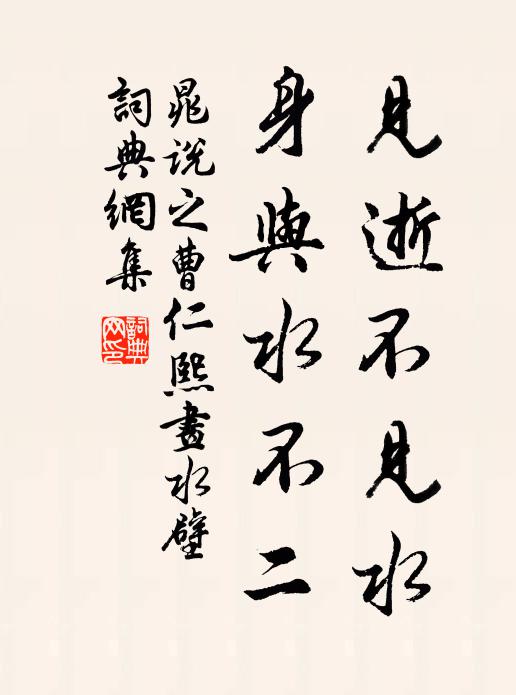 見逝不見水
身與水不二
晁說之曹仁熙畫水壁
詞典網集
詞典網印